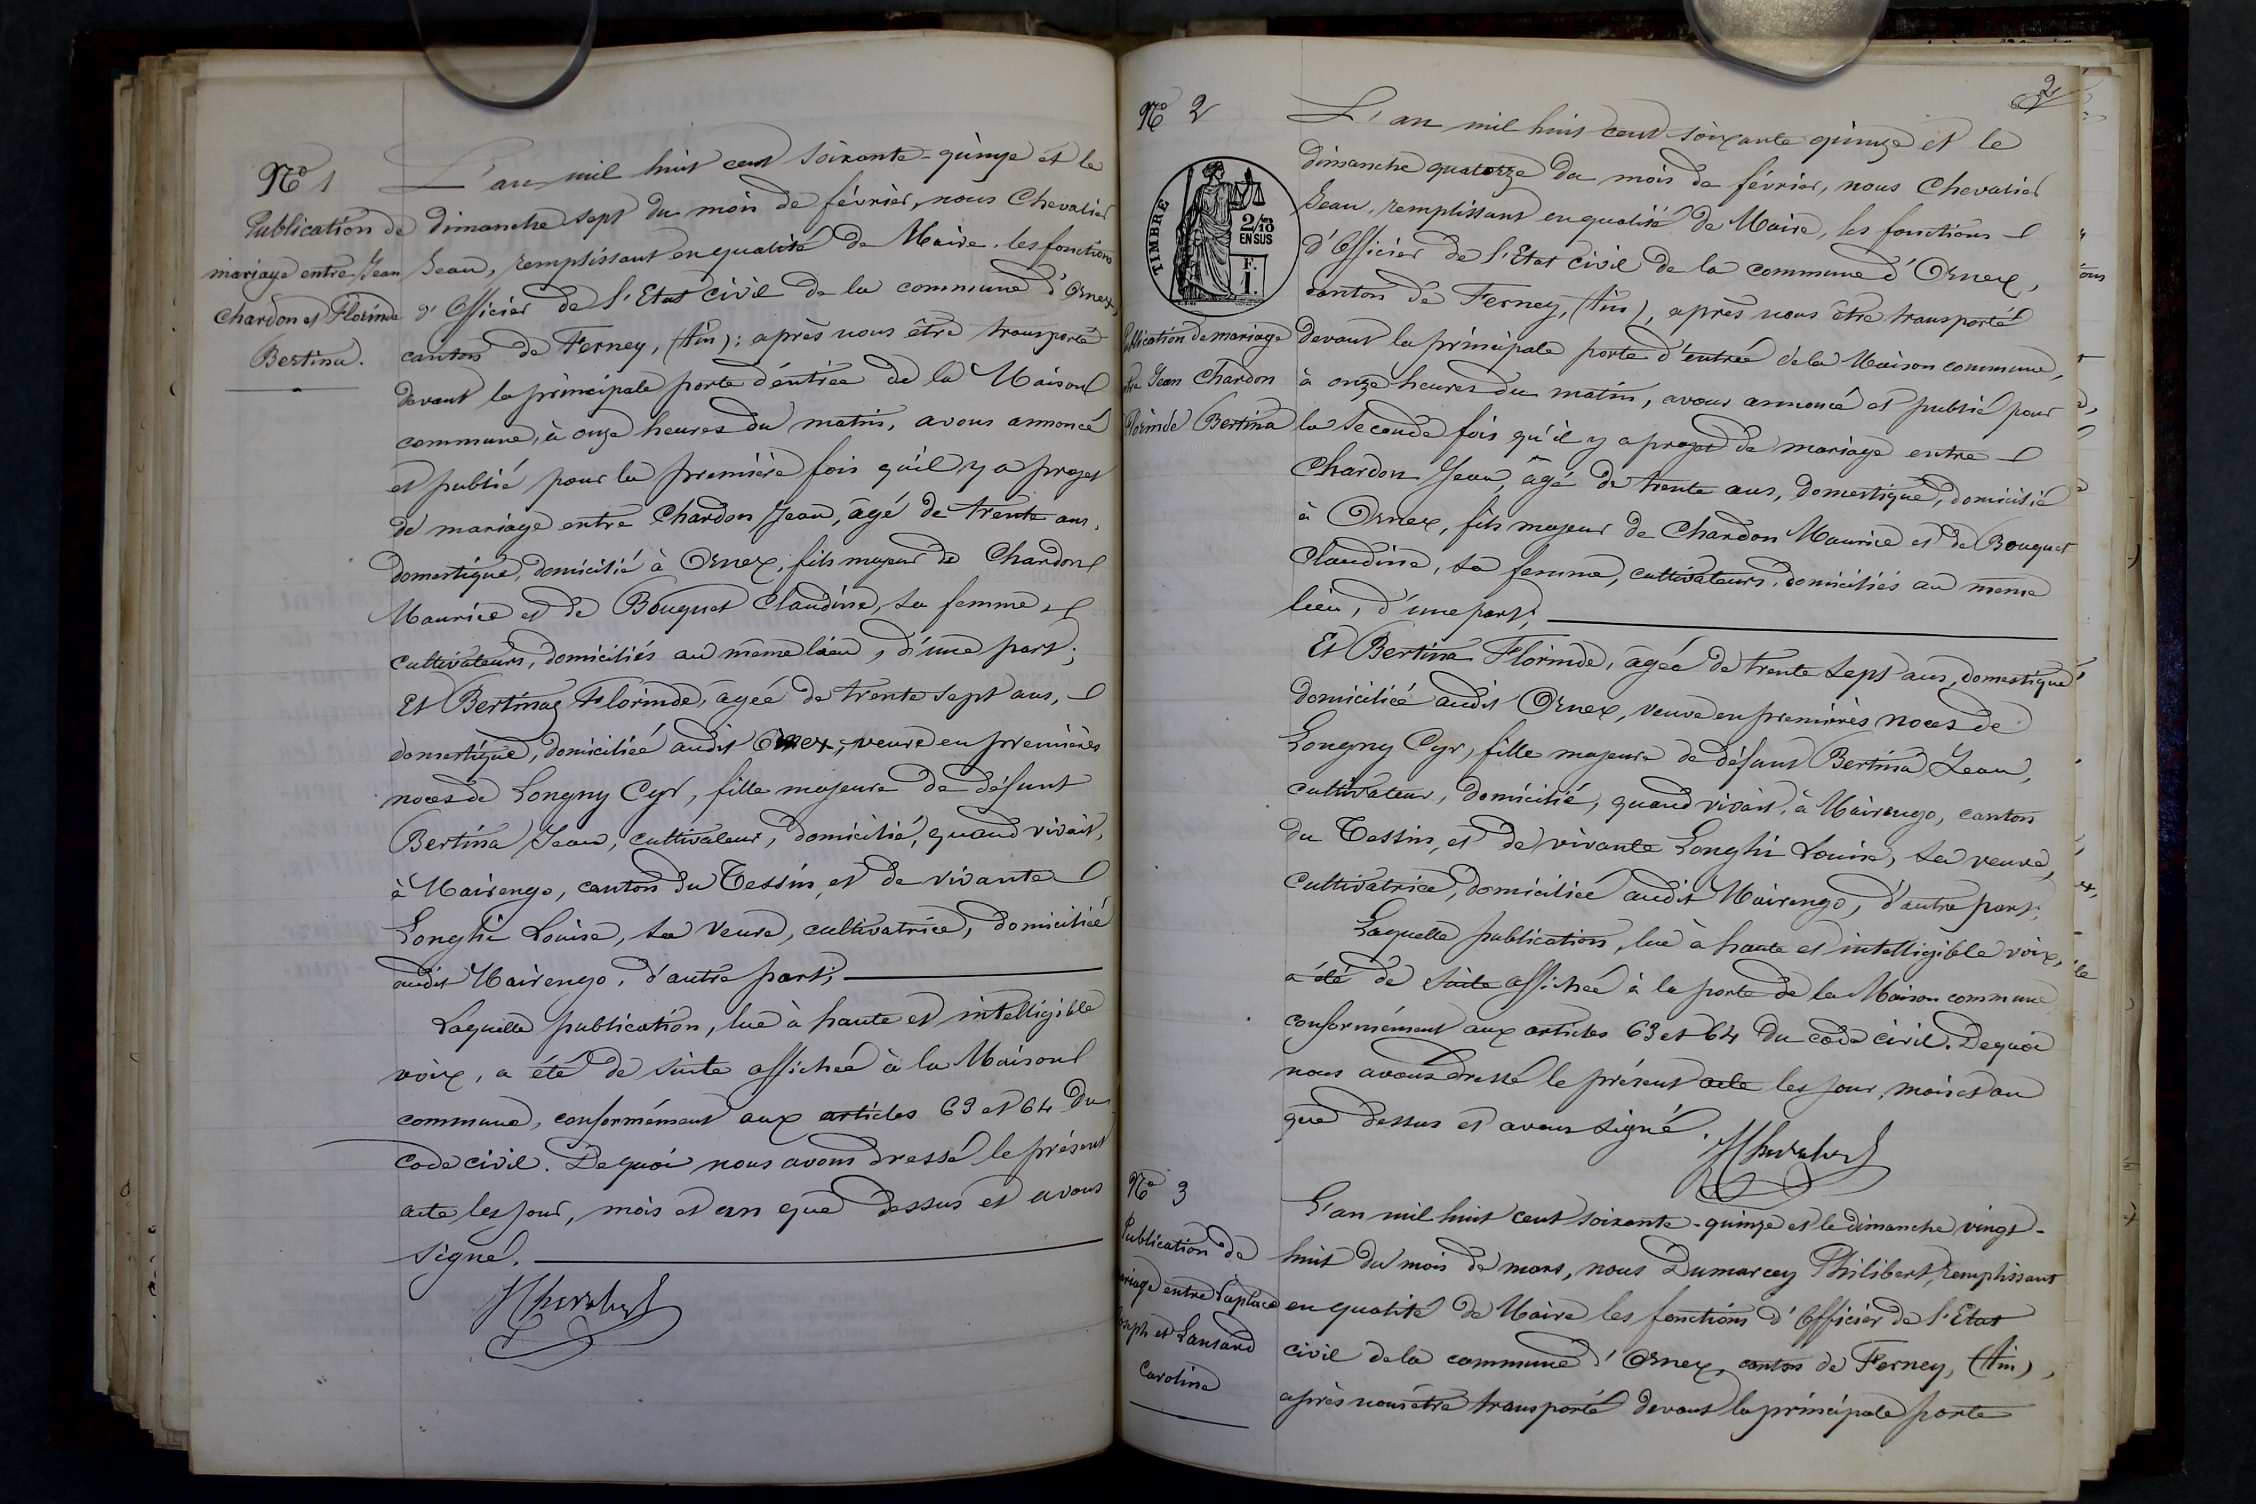 Nº 1
Publication de
mariage entre Jean
Chardon et Florinde
Bertina.
L'an mil huit cent soixante-quinze et le
dimanche sept du mois de février, nous Chevalier
Jean, remplissant en qualité de Maire, les fonctions
d'Officier de l'Etat civil de la commune d'Ornex,
canton de Ferney, (Ain); après nous être transporté
devant la principale porte d'entrée de la Maison
commune, à onze heures du matin, avons annoncé
et publié pour la première fois qu'il y a projet
de mariage entre Chardon Jean, âgé de trente ans,
domestique, domicilié à Ornex, fils majeur de Chardon
Maurice et de Bouquet Claudine, sa femme,
cultivateurs, domiciliés au même lieu, d'une part;
Et Bertina Florinde, âgée de trente sept ans,
domestique, domiciliée audit Ornex, veuve en premières
noces de Longny Cyr, fille majeure de défunt
Bertina Jean, cultivateur, domicilié, quand vivait,
à Mairengo, canton du Tessin, et de vivante
Longhi Louise, sa veuve, cultivatrice, domiciliée
audit Mairengo, d'autre part;
Laquelle publication, lue à haute et intelligible
voix, a été de suite affichée à la Maison
commune, conformément aux articles 63 et 64 du
code civil. De quoi nous avons dressé le présent
acte les jour, mois et an que dessus et avons
signé.
JChevalier
2
Nº 2
TIMBRE
2/10
EN SUS
F.
1.
Publication de mariage
Jean Chardon
Florinde Bertina
L'an mil huit cent soixante quinze et le
dimanche quatorze du mois de février, nous Chevalier
Jean, remplissant en qualité de Maire, les fonctions
d'Officier de l'Etat civil de la commune d'Ornex,
canton de Ferney, (Ain), après nous être transporté
devant la principale porte d'entrée de la Maison commune,
à onze heures du matin, avons annoncé et publié pour
la seconde fois qu'il y a projet de mariage entre
Chardon Jean, âgé de trente ans, domestique, domicilié
à Ornex, fils majeur de Chardon Maurice et de Bouquet
Claudine, sa femme, cultivateurs, domiciliés au même
lieu, d'une part;
Et Bertina Florinde, âgée de trente sept ans, domestique
domiciliée audit Ornex, veuve en premières noces de
Longny Cyr, fille majeure de défunt Bertina Jean,
cultivateur, domicilié, quand vivait, à Mairengo, canton
du Tessin, et de vivante Longhi Louise, sa veuve,
cultivatrice, domiciliée audit Mairengo, d'autre part;
Laquelle publication, lue à haute et intelligible voix,
a été de suite affichée à la porte de la Maison commune
conformément aux articles 63 et 64 du code civil. De quoi
nous avons dressé le présent acte les jour, mois et an
que dessus et avons signé.
JChevalier
Nº 3
Publication de
mariage entre Laplace
Joseph et Lansard
Caroline
L'an mil huit cent soixante-quinze et le dimanche vingt-
huit du mois de mars, nous Dumarcey Philibert, remplissant
en qualité de Maire les fonctions d'Officier de l'Etat
civil de la commune d'Ornex, canton de Ferney, (Ain),
après nous être transporté devant la principale porte